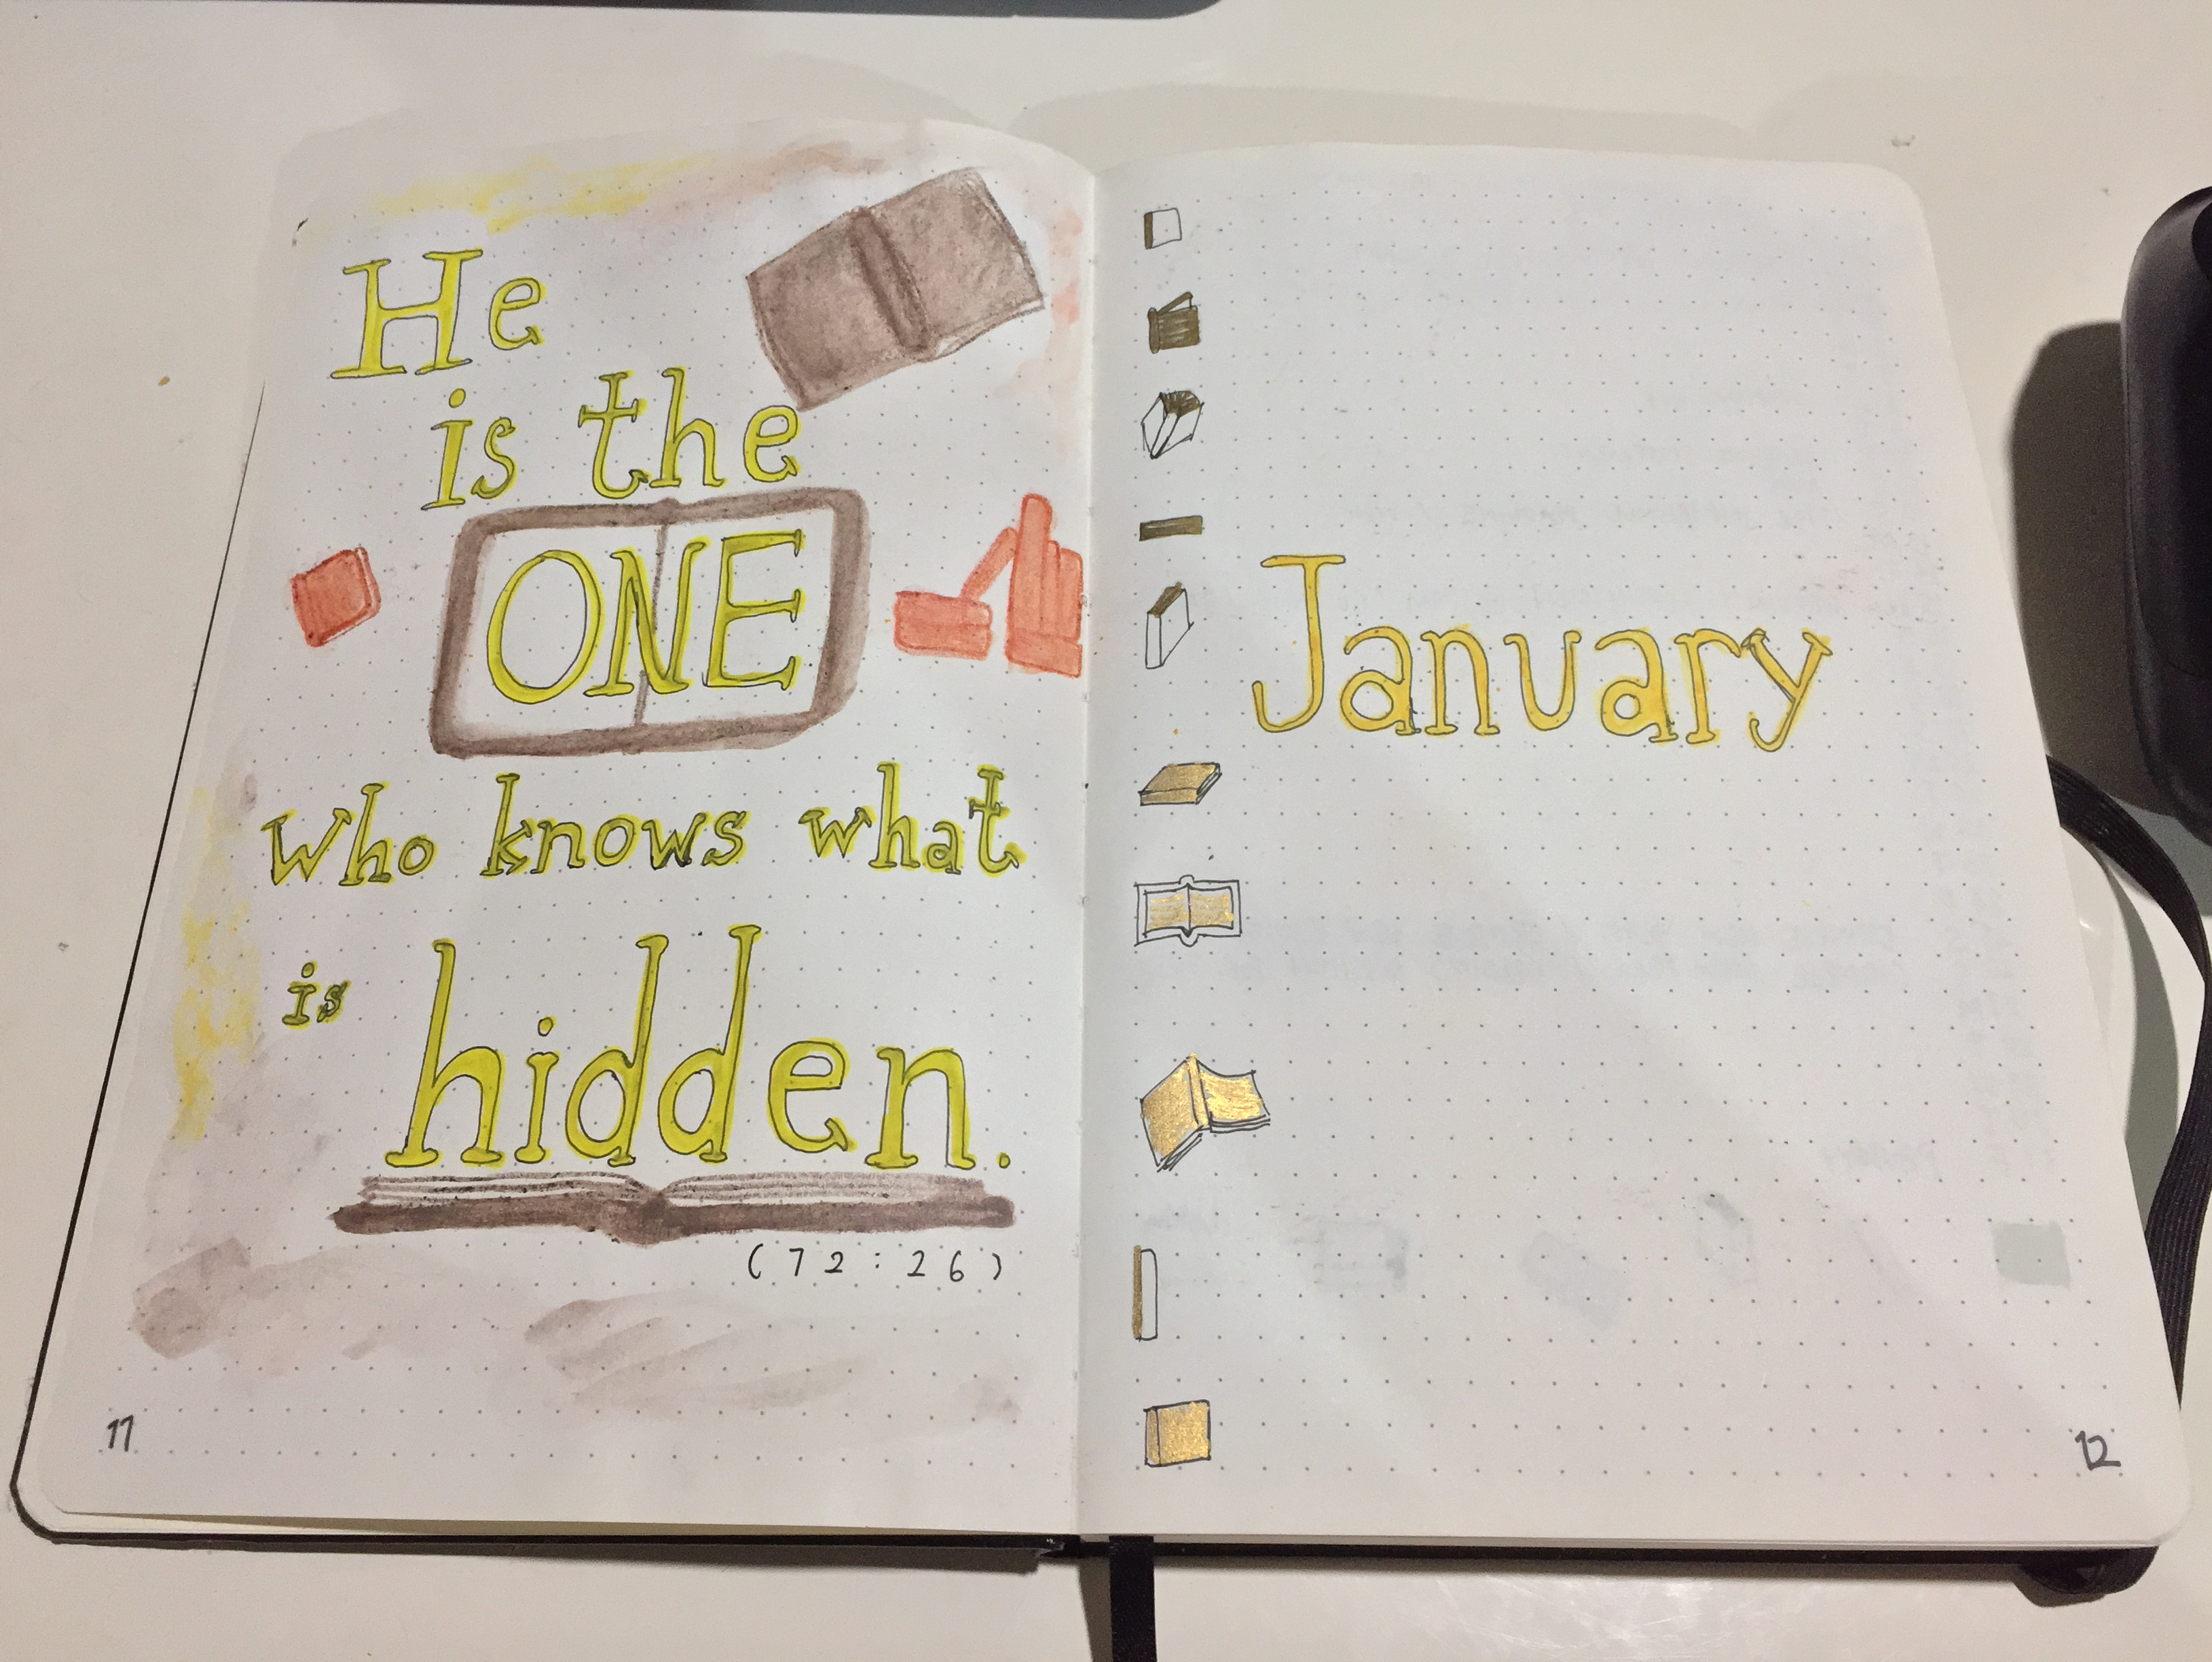 He
is the
ONE
who knows what
is hidden.
(72:26)
11
January
12